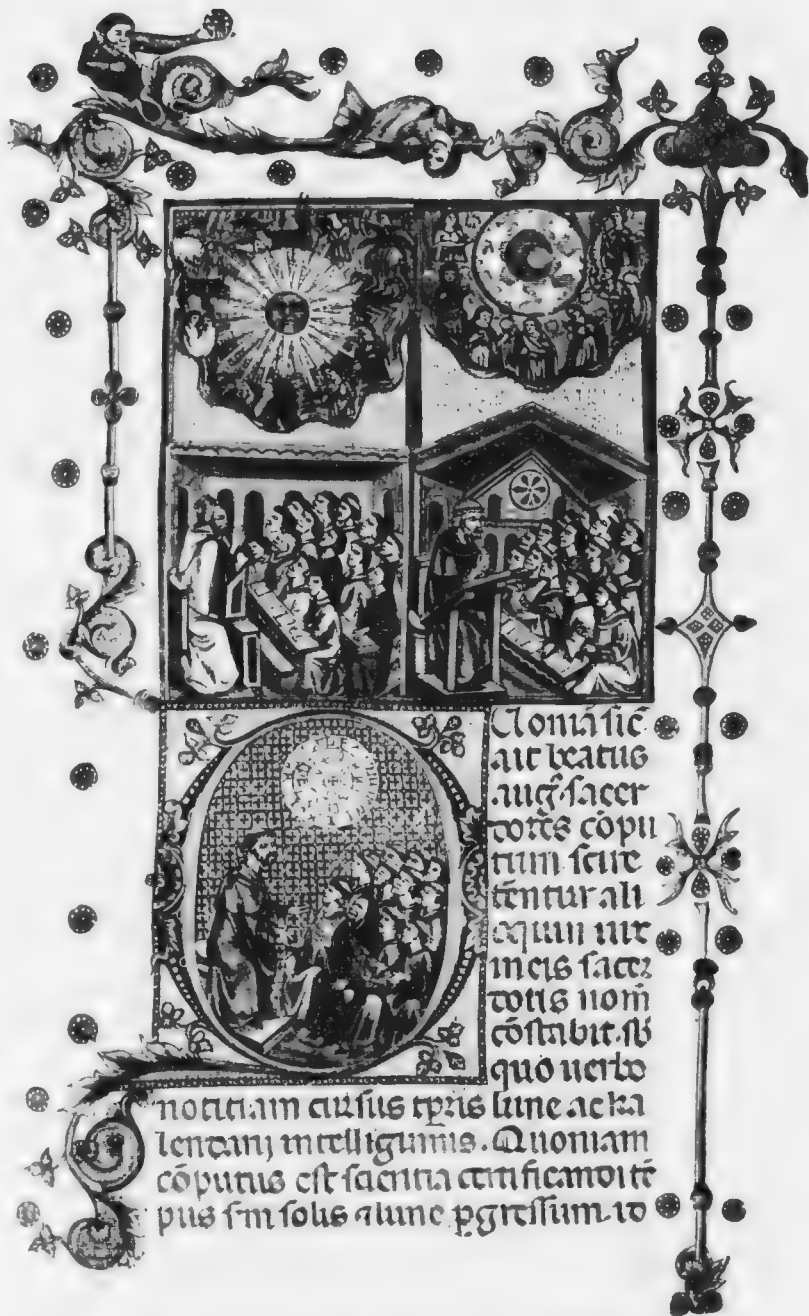 Uoniā sic̄
ait beatus
aug̃ sacer
dotes cōpu
tum scire
tenētur ali
oquin uix
in eis sacer
dotis nom̄
cōstabit. sb
quo uerbo
notitiam cursus tp̄ris lune ac ka
lendarij intelligimus. Quoniam
cōputus est scientia certificandi tē
pus s̄m solis ⁊ lune p̱gressum. io